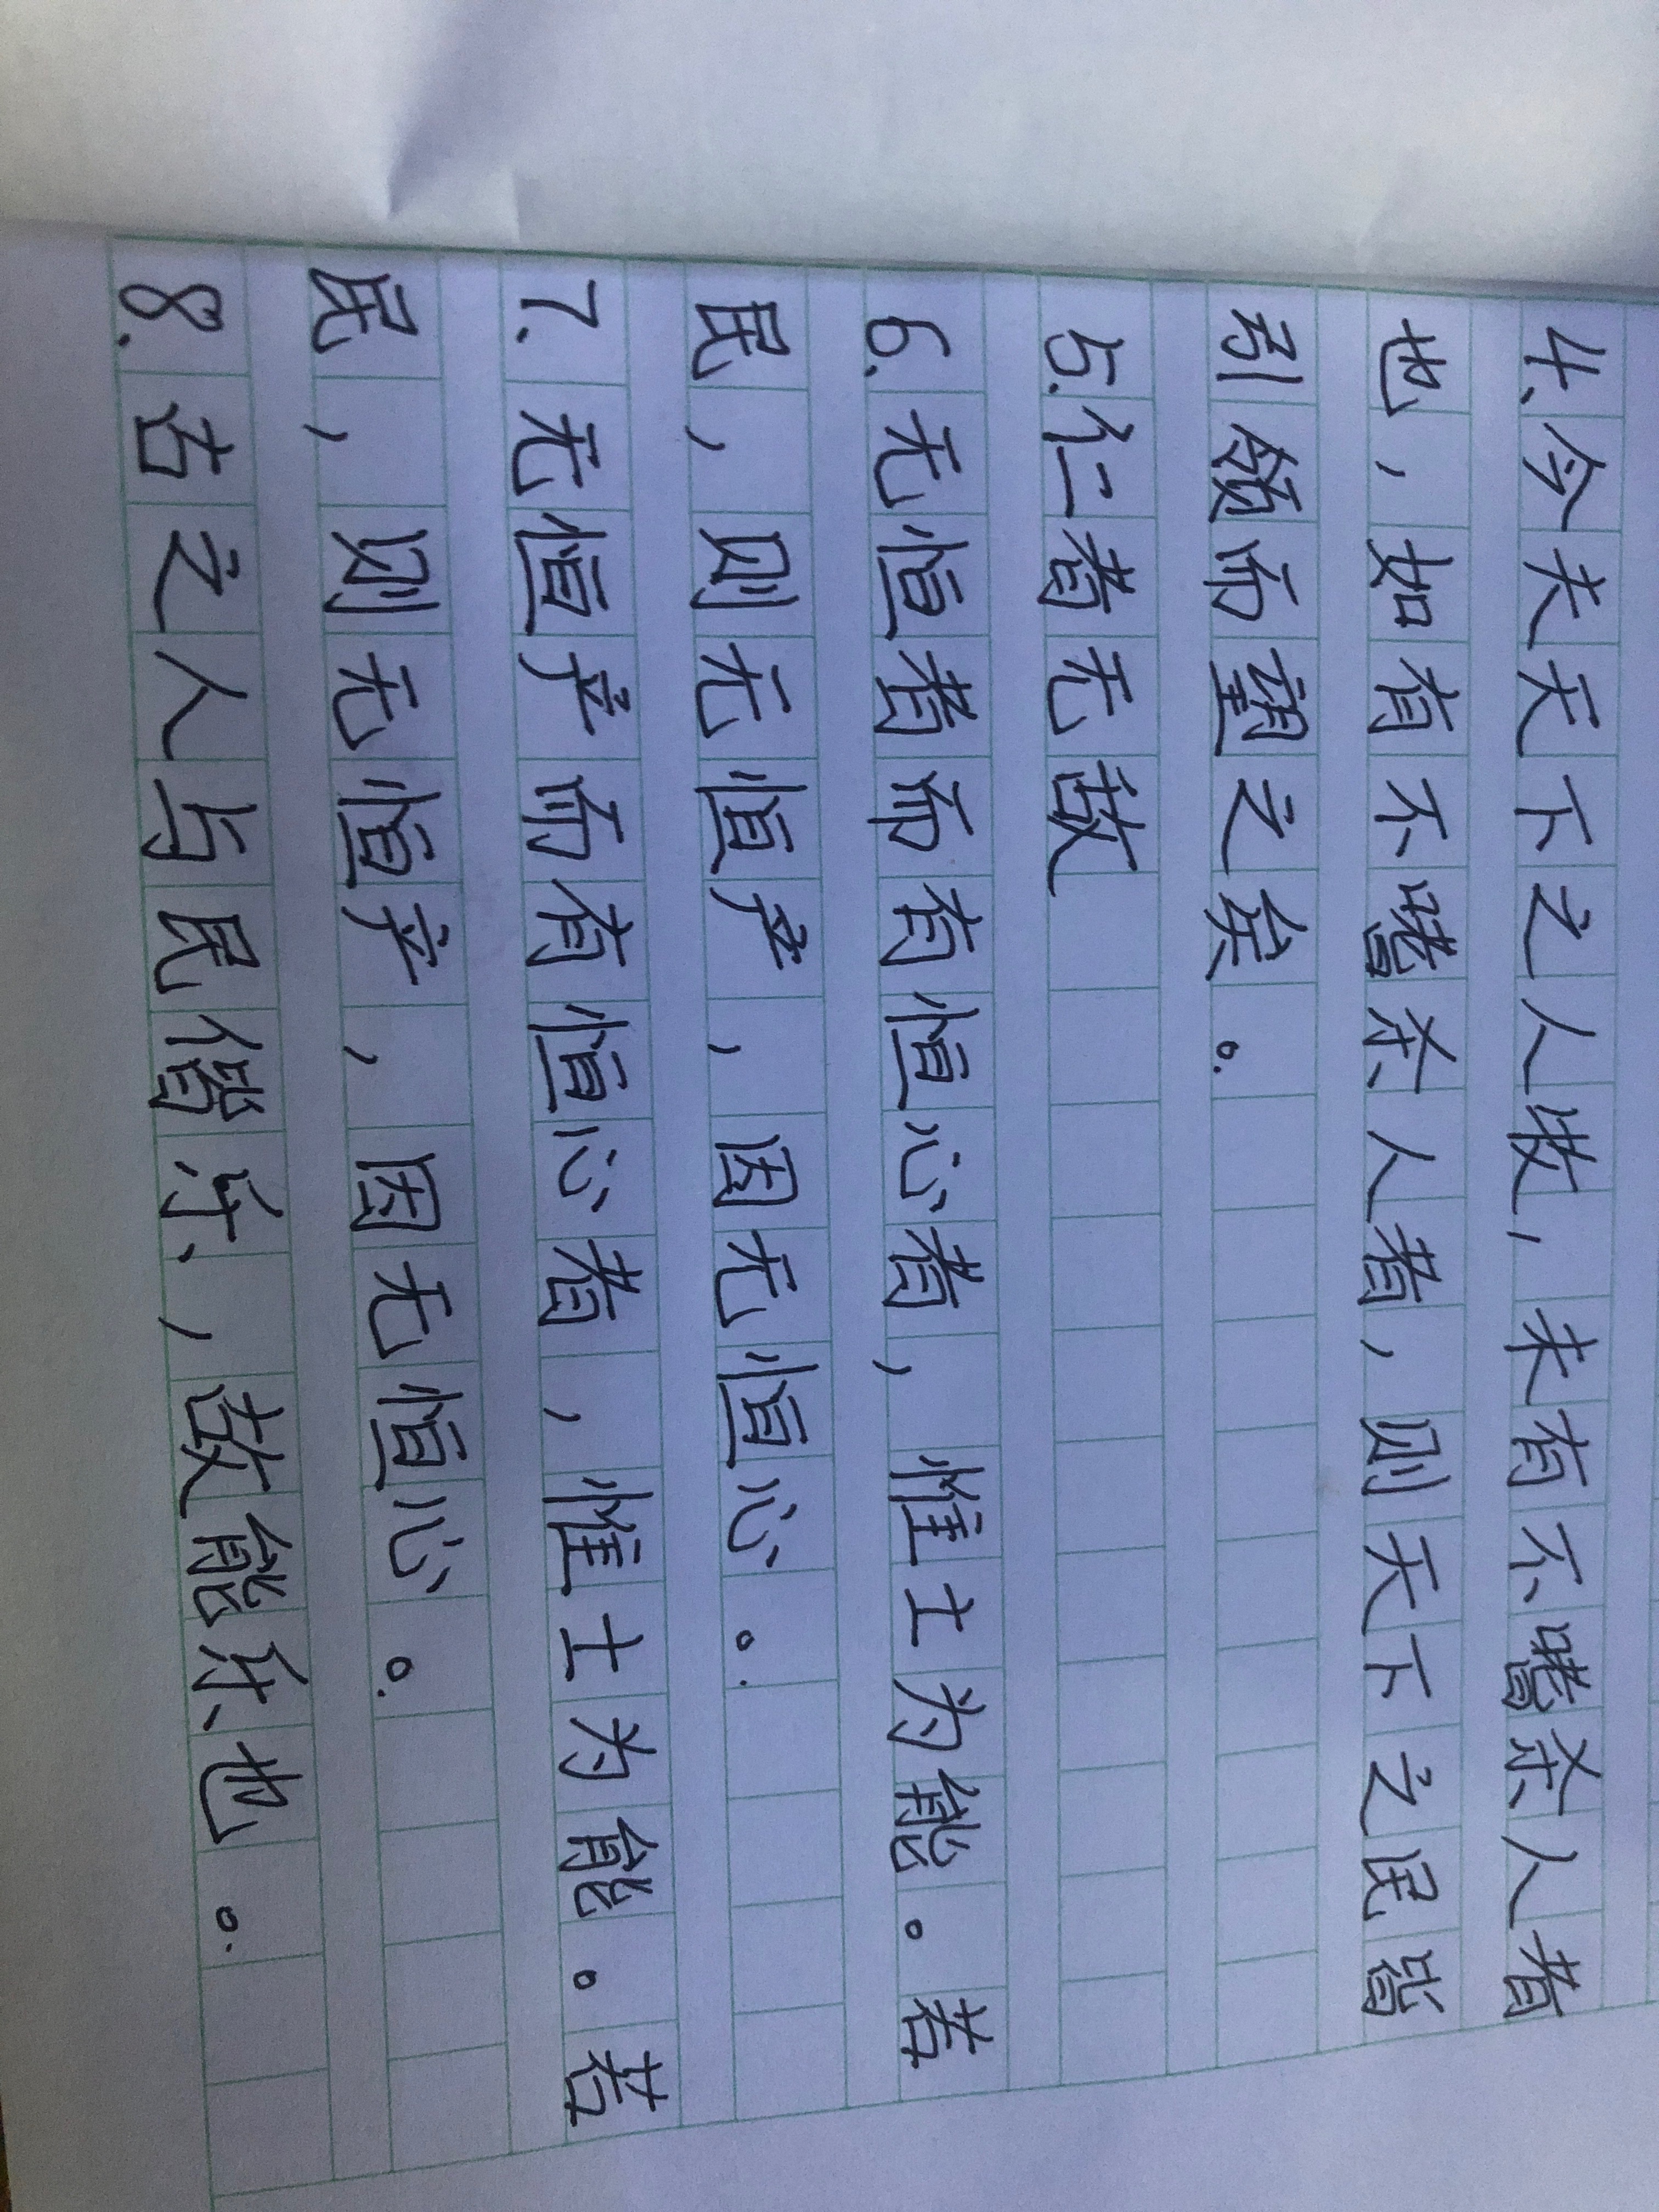 4.今夫天下之人牧，未有不嗜杀人者
也，如有不嗜杀人者，则天下之民皆
引领而望之矣。
5.仁者无故
6.无恒者而有恒心者，惟士为能。若
民，则无恒产，因无恒心。
7.无恒产而有恒心者，惟士为能。若
民，则无恒产，因无恒心。
8.古之人与民偕乐，故能乐也。